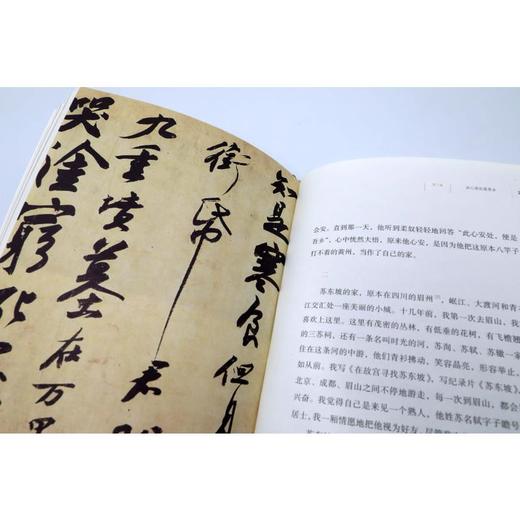 知是寒食但
銜帋君
九重墳墓在万里
哭塗窮死
会安。直到那一天，他听到柔奴轻轻地回答“此心安处，便是
吾乡”，心中恍然大悟，原来他心安，是因为他把这原本八竿子
打不着的黄州，当作了自己的家。
二
苏东坡的家，原本在四川的眉州，岷江、大渡河和青
江交汇处一座美丽的小城。十几年前，我第一次去眉山，
喜欢上这里。这里有茂密的丛林，有低垂的花树，有飞檐翘
的三苏祠，还有一条名叫时光的河，苏洵、苏轼、苏辙一家
住在这条河的中游，他们青衫拂动，笑容晶亮，形容举止，
如从前。我写《在故宫寻找苏东坡》，写纪录片《苏东坡》，
北京、成都、眉山之间不停地游走，每一次到眉山，都会
兴奋。我觉得自己是来见一个熟人，他姓苏名轼字子瞻号
居士。我一厢情愿地把他视为好友，尽管